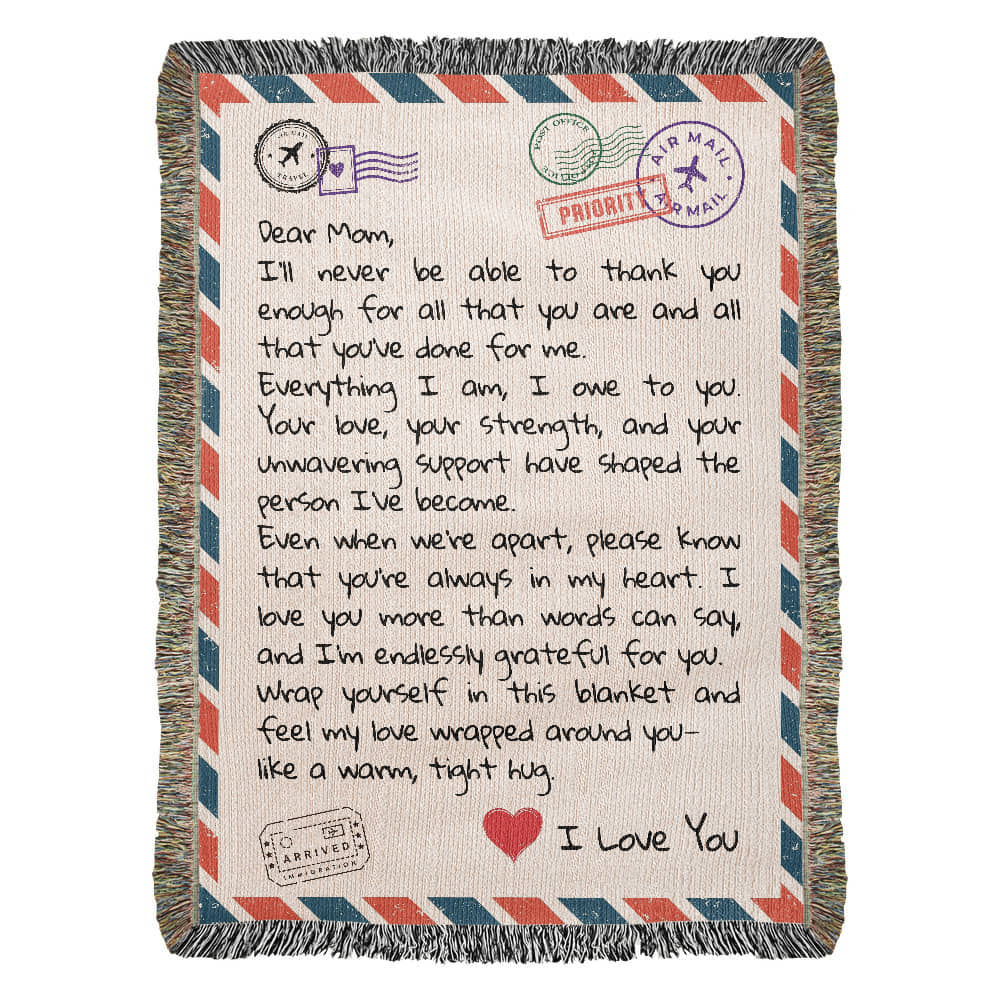 AIR MAIL
TRAVEL
POST OFFICE
AIR MAIL
AIR MAIL
PRIORITY
Dear Mom,
I'll never be able to thank you
enough for all that you are and all
that you've done for me.
Everything I am, I owe to you.
Your love, your strength, and your
unwavering support have shaped the
person I've become.
Even when we're apart, please know
that you're always in my heart. I
love you more than words can say,
and I'm endlessly grateful for you.
Wrap yourself in this blanket and
feel my love wrapped around you–
like a warm, tight hug.
I Love You
ARRIVED
IMMIGRATION